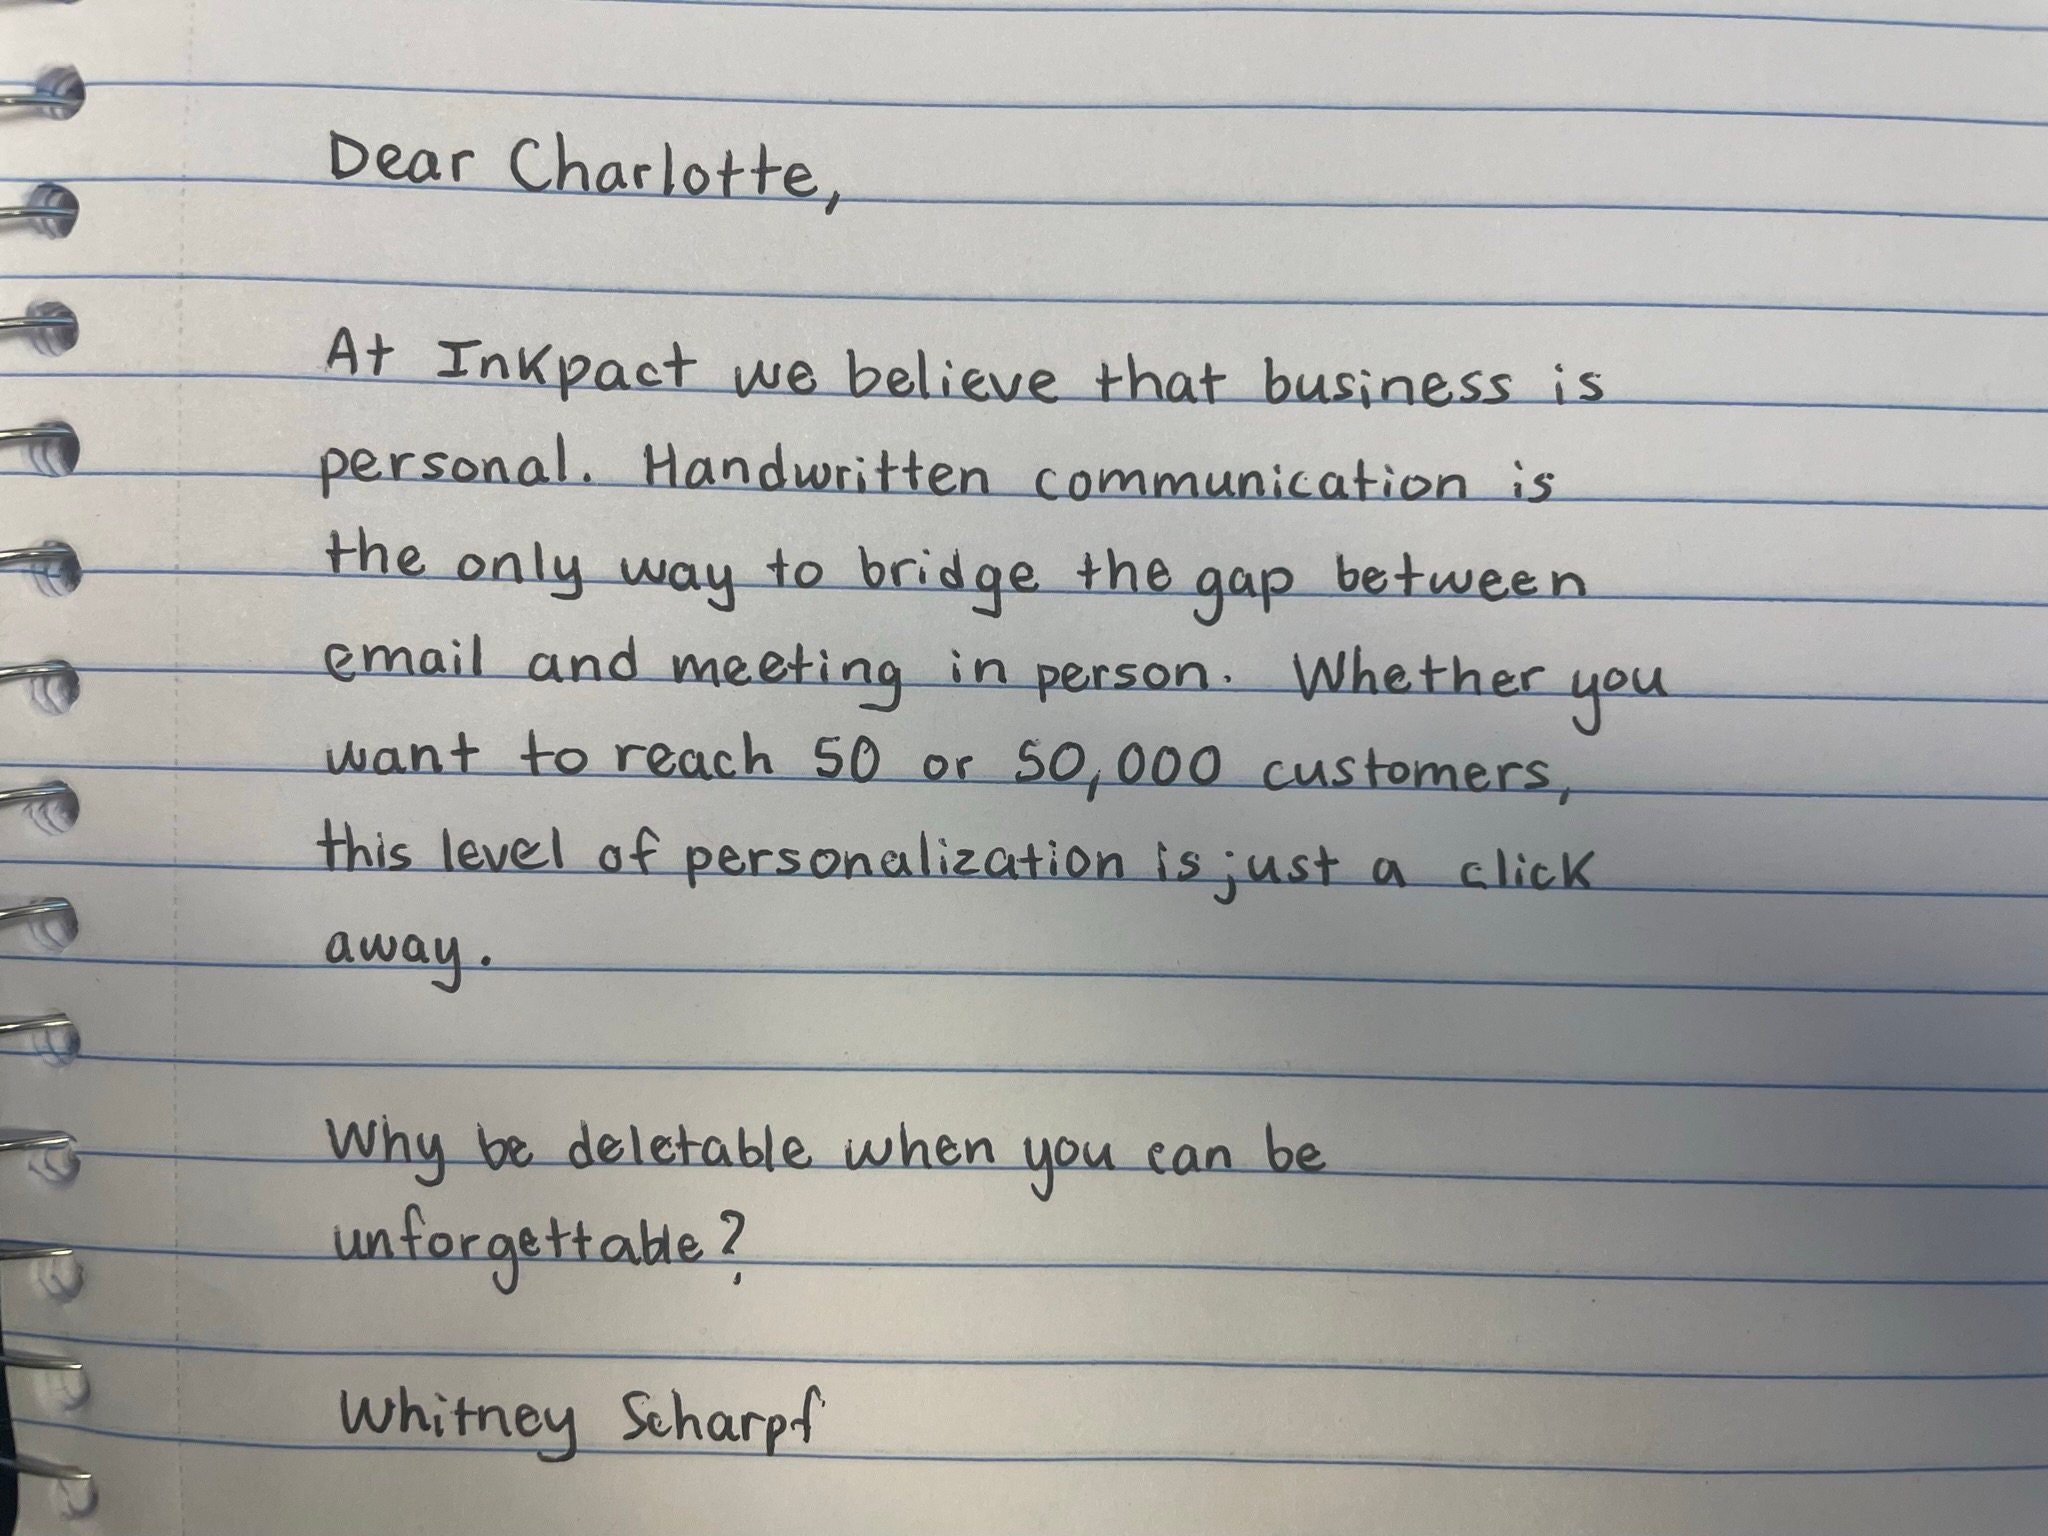 Dear Charlotte,
At Inkpact we believe that business is
personal. Handwritten communication is
the only way to bridge the gap between
email and meeting in person. Whether you
want to reach 50 or 50,000 customers,
this level of personalization is just a click
away.
Why be deletable when you can be
unforgettable?
Whitney Scharpf